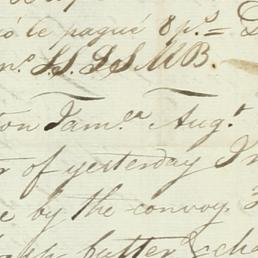 ó le pagué 8 p.s =
S.S.S.S.M.B.
ton Jam.ca Aug.t
of yesterday I
by the convoy.
butter & cha